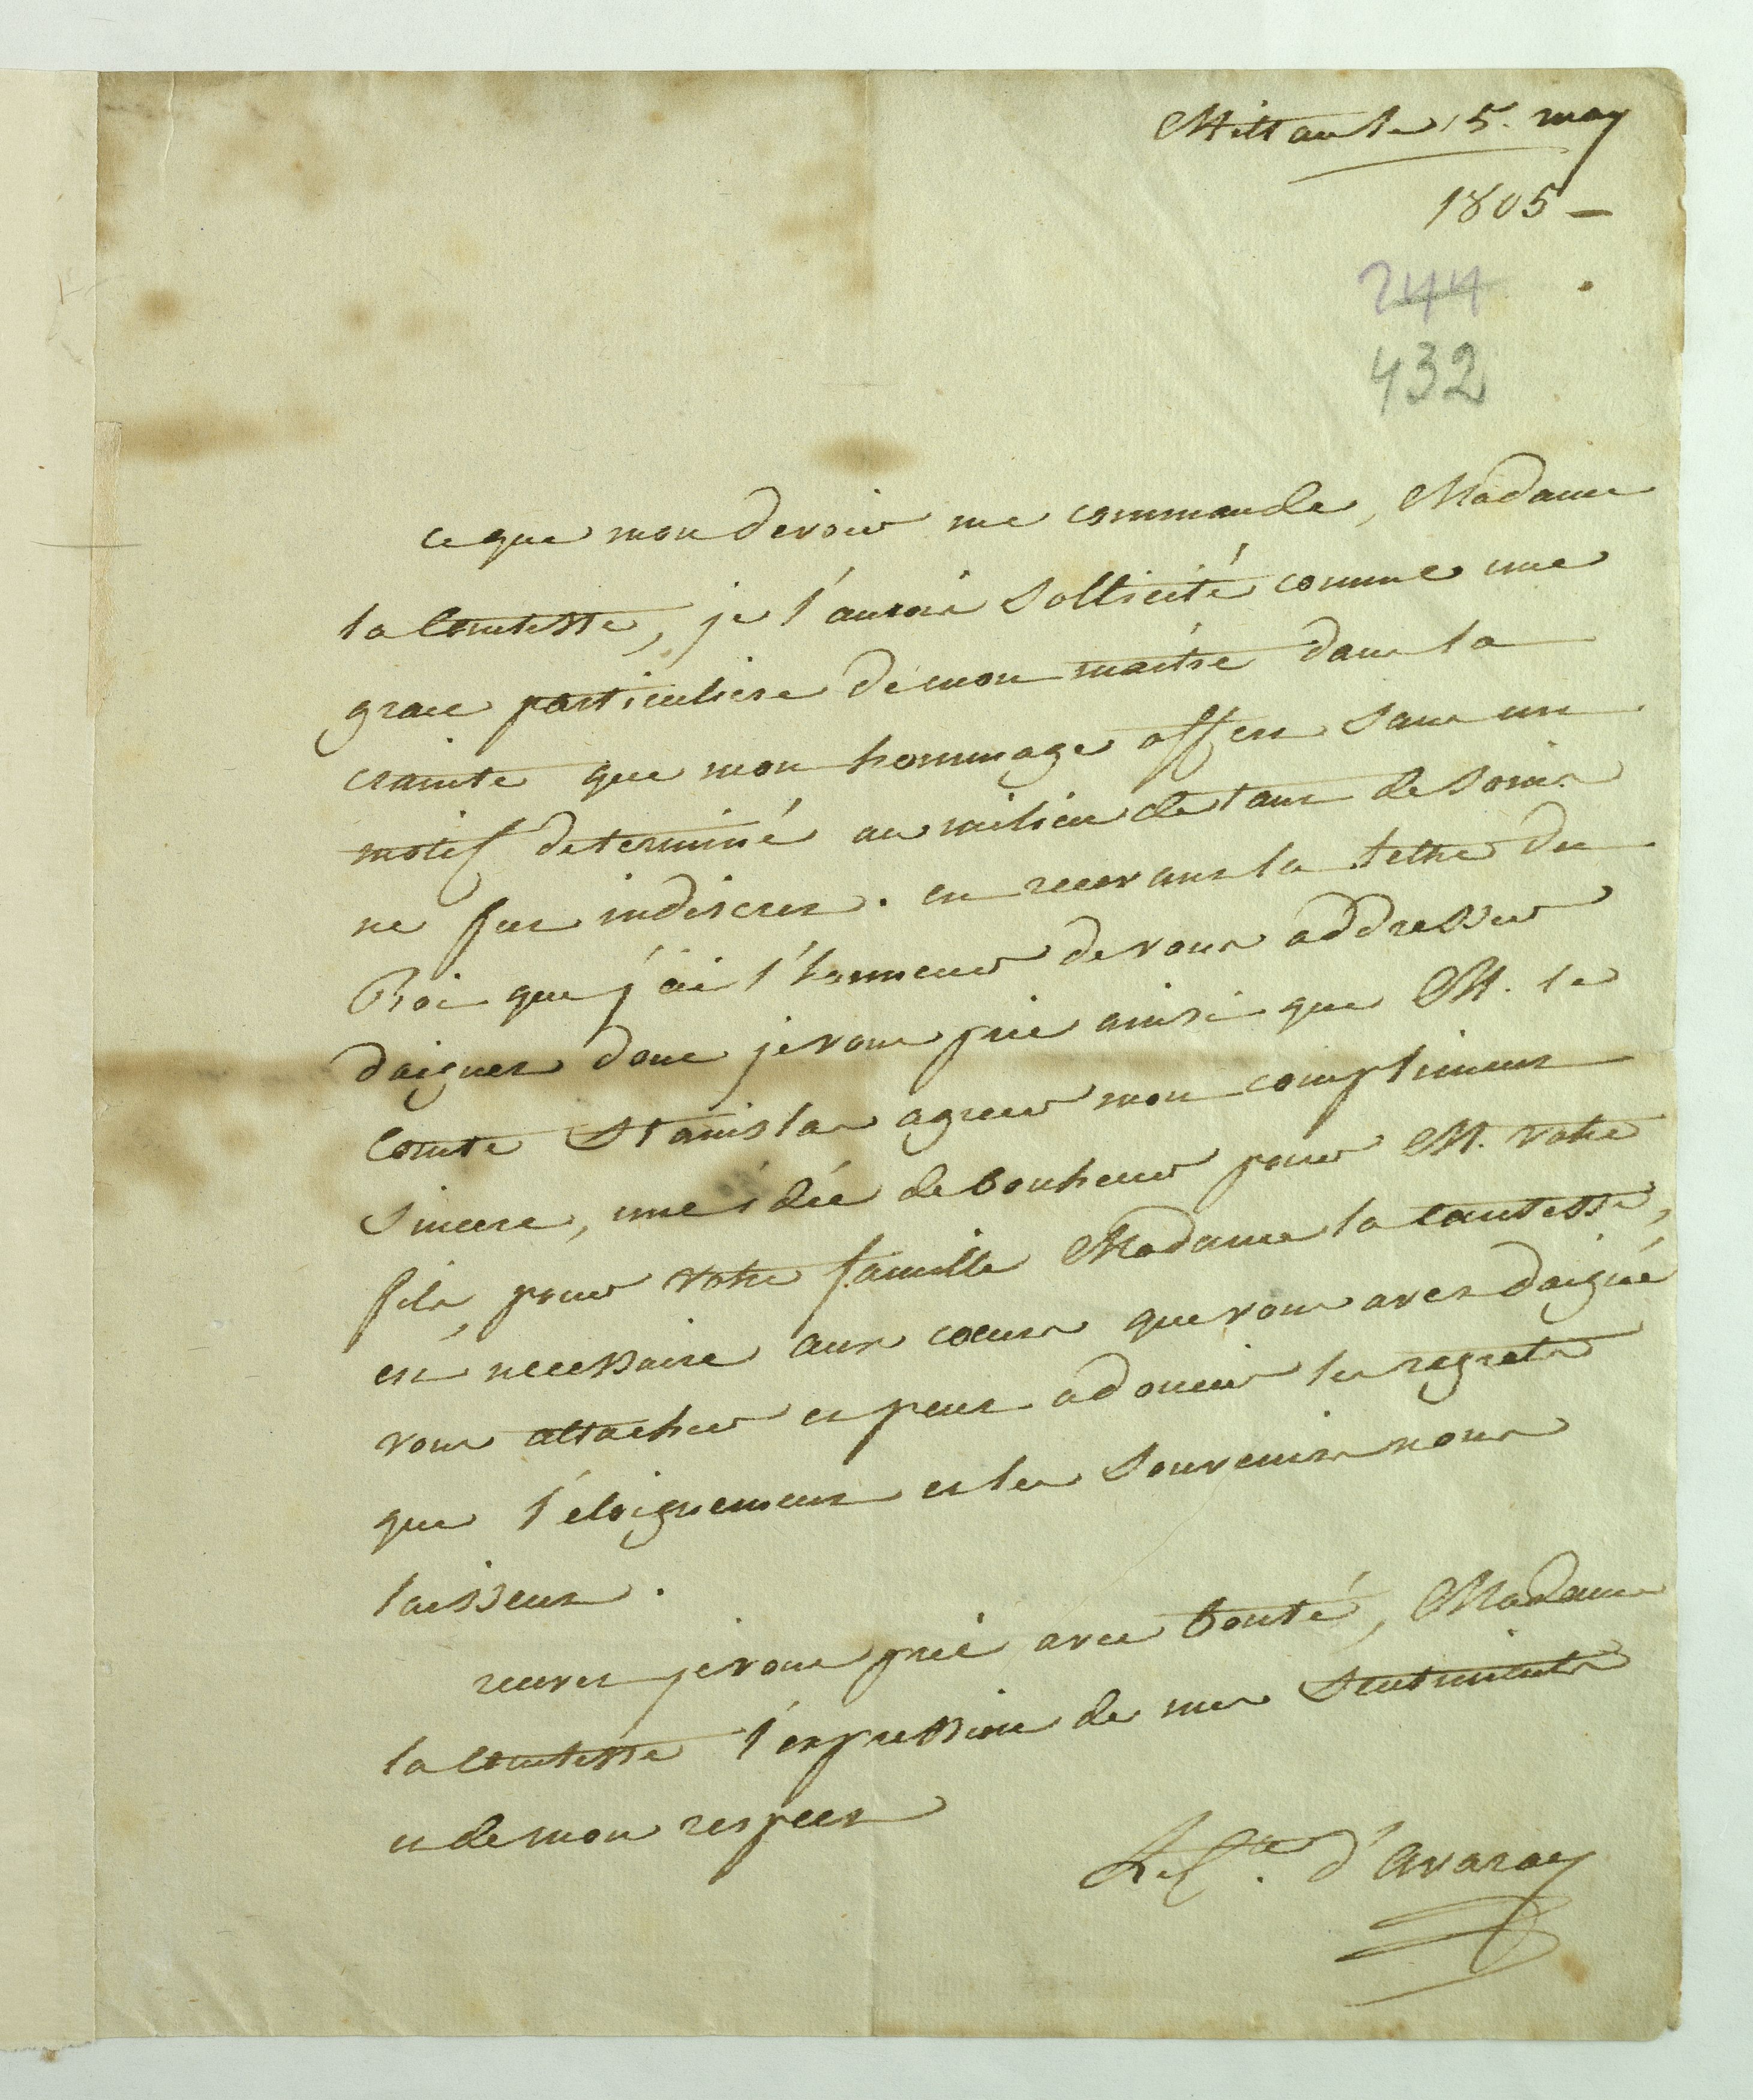 Mittau le 15. may
1805 —
244
432
ce que mon devoir me commande, Madame
la Comtesse, je l'aurai sollicité comme une
grace particuliere de mon maitre dans la
crainte que mon hommage offert sans un
motif determiné au milieu de tant de soins
ne fut indiscret. en recevant la lettre du
Roi que j'ai l'honneur de vous addresser
daignez donc je vous prie ainsi que M. le
Comte Stanislas agreer mon compliment
sincere, une idée de bonheur pour M. votre
fils, pour votre famille Madame la comtesse,
est necessaire aux coeurs que vous avez daigné
vous attacher et peut adoucir les regrets
que l'éloignement et les souvenirs nous
laissent.
recevez je vous prie avec bonté, Madame
la Comtesse l'expression de mes sentiments
et de mon respect
Le Cte. d'Avaray